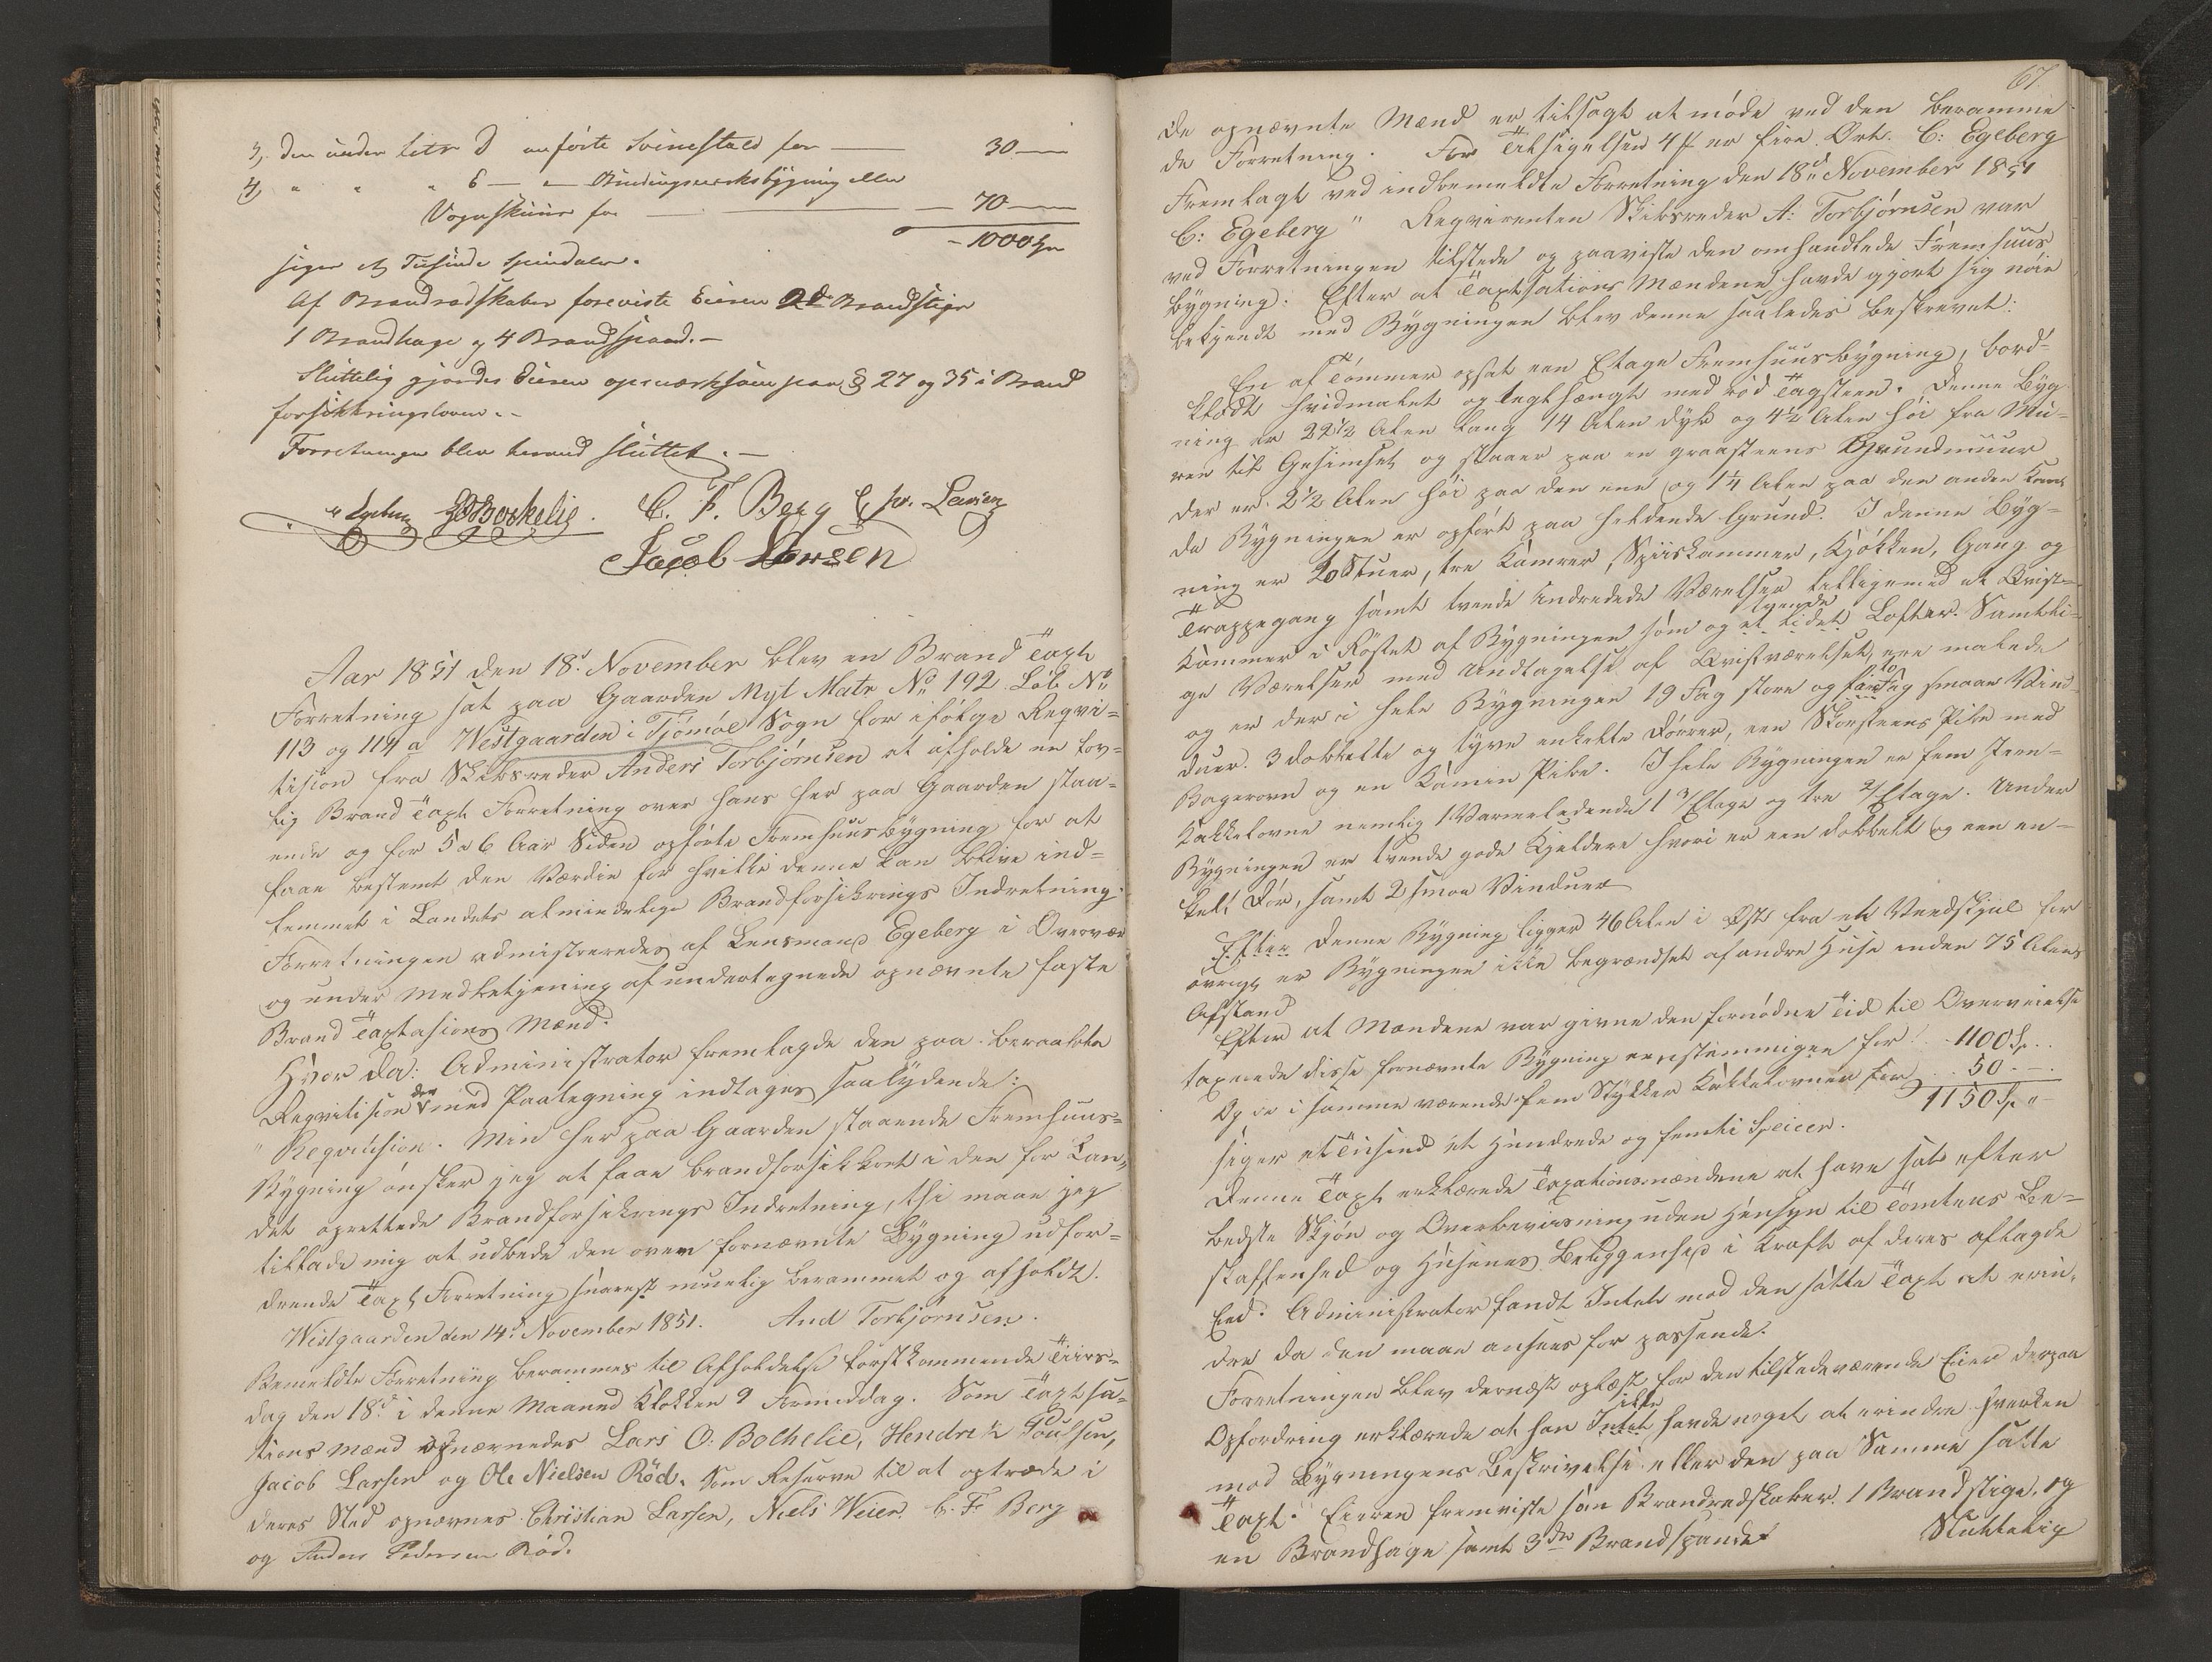 3, den under litr D anførte Svinestald for — 30 —
4, " " " E — " — Bindingsværksbygning eller
Vognskuur for — 70 —
— 1000 Spd
siger et Tusinde Speciedaler.
Af Brandredskaber foreviste Eieren 2de Brandstiger
1 Brandhage og 4 Brandspand. —
Sluttelig gjordes Eieren opmærksom paa § 27 og 35 i Brand
forsikkringsloven. —
Forretningen blev hermed sluttet. —
Egeberg C. F. Berg Chr. Larsen
Jacob Larsen
Aar 1851 den 18d November blev en Brand Taxt
Forretning sat paa Gaarden Myl Matr No 192 Lób. No
113 og 114 a Westgaarden i Tjömöe Sogn for ifølge Reqvi=
tision fra Skibsreder Anders Torbjörnsen at afholde en lov=
lig Brand Taxt Forretning over hans her paa Gaarden staa=
ende og for 5 a 6 Aar Siden opførte Fremhuusbygning for at
faae bestemt den Værdie for hvilke denne kan blive ind=
lemmet i Landets almindelige Brandforsikrings Indretning.
Forretningen admistreredes af Lensmand Egeberg i Overvær
og under Medbetjening af undertegnede opnævnte faste
Brand Taxtasions Mænd.
Hvor da: Administrator fremlagde den paa beraabte
Reqvisision der med Paategning indtages saalydende:
"Reqvisision. Min her paa Gaarden staaende Fremhuus=
Bygning ønsker jeg at faae brandforsikkret i den for Lan=
det oprettede Brandforsikrings Indretning, thi maae jeg
tillade mig at udbede den over fornævnte Bygning udfor=
drende Taxt Forretning snarest muelig berammet og afholdt.
Westgaarden den 14d November 1851. And Torbjörnsen.
Bemeldte Forretning berammes til Afholdelse førstkommende Tiirs=
dag den 18d i denne Maaned Klokken 9 Formiddag. Som Taxtsa=
tions Mænd opnævnedes Lars O. Bothelie, Hendrik Poulsen,
Jacob Larsen og Ole Nielsen Röd. Som Reserve til at optræde i
deres Sted opnævnes Christian Larsen, Niels Weien, C. F. Berg
og Anders Pedersen Röd.
67.
De opnævnte Mænd er tilsagt at møde ved den beramme
de Forretning. For Tilsigelsen 4 ß er fire Ort. C: Egeberg
Fremlagt ved indbemeldte Forretning den 18d November 1851
C: Egeberg" Reqvirenten Skibsreder A: Torbjörnsen var
ved Forretningen tilstede og paaviste den omhandlede Fremhuus
bygning. Efter at Taxtsations Mændene havde gjort sig nøie
bekjendt med Bygningen blev denne saaledes beskrevet:
En af Tømmer opsat een Etage Fremhuusbygning, bord=
klædt hvidmalet og tegthængt med rød Tagsteen. Denne Byg
ning er 22½ Alen lang 14 Alen dyb og 4½ Alen høi fra Mu=
ren til Gesimset og staaer paa en graasteens Grundmuur
der er 2½ Alen høi paa den ene og 1¼ Alen paa den anden Kant
da Bygningen er opført paa heldende Grund. I denne Byg=
ning er to Stuer, tre Kamrer, Spiiskammer, Kjøkken, Gang og
Trappegang samt tvende Indredede Værelser tilligemed et Qvist=
Kammer i Røstet af Bygningen som og et lidet tvende Lofter. Samtli=
ge Værelser med Undtagelse af Qvistværelset, ere malede
og er der i hele Bygningen 19 Fag store og fire to Fag smaae Vin
duer. 3 dobbelte og tyve enkelte Dørrer, een Skorsteens Pibe med
Bagerovn og en Kamin Pibe. I hele Bygningen er fem Jern=
Kakkelovne nemlig 1 Varmeledende 1 3/Etage og tre 2/Etage. Under
Bygningen er tvende gode Kjeldere hvori er een dobbelt og een en=
kelt Dør, samt 2 smaa Vinduer
Efter Denne Bygning ligger 46 Alen i Øst fra et Vedskjul for
øvrigt er Bygningen ikke begrændset af andre Huse inden 75 Alens
Afstand
Efter at Mændene var givne den fornødne Tid til Overveielse
taxerede disse fornævnte Bygning eenstemmigen for 1100 Sp. .
Og de i samme værende fem Stykker Kakkelovner for 50 . —
1150 Sp "
siger et Tusind et Hundrede og femti Specier.
Denne Taxt erklærede Taxationsmændene at have sat efter
bedste Skjøn og Overbeviisning uden Hensyn til Tomtens Be=
skaffenhed og Husenes Beliggenhed i Kraft af deres aflagde
Eed. Administrator fandt Intet mod den satte Taxt at erin=
dre da den maae ansees for passende.
Forretningen blev dernæst oplæst for den tilstedeværende Eier derpaa
Opfordring erklærede at han Intet ikke havde noget at erindre hverken
mod Bygningens Beskrivelse eller den paa Samme satte
Taxt. Eieren fremviste som Brandredskaber 1 Brandstige, og
en Brandhage samt 3de Brandspande
Sluttelig